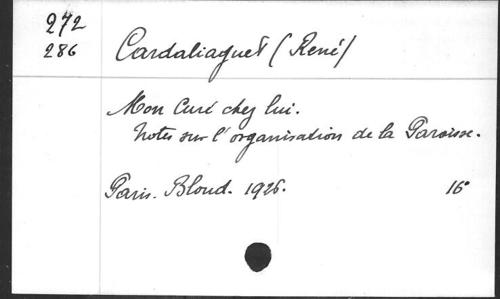 272
286
Cardaliaguet (René)
Mon Curé chez lui.
Notes sur l'organisation de la Paroisse.
Paris. Bloud. 1926. 16°